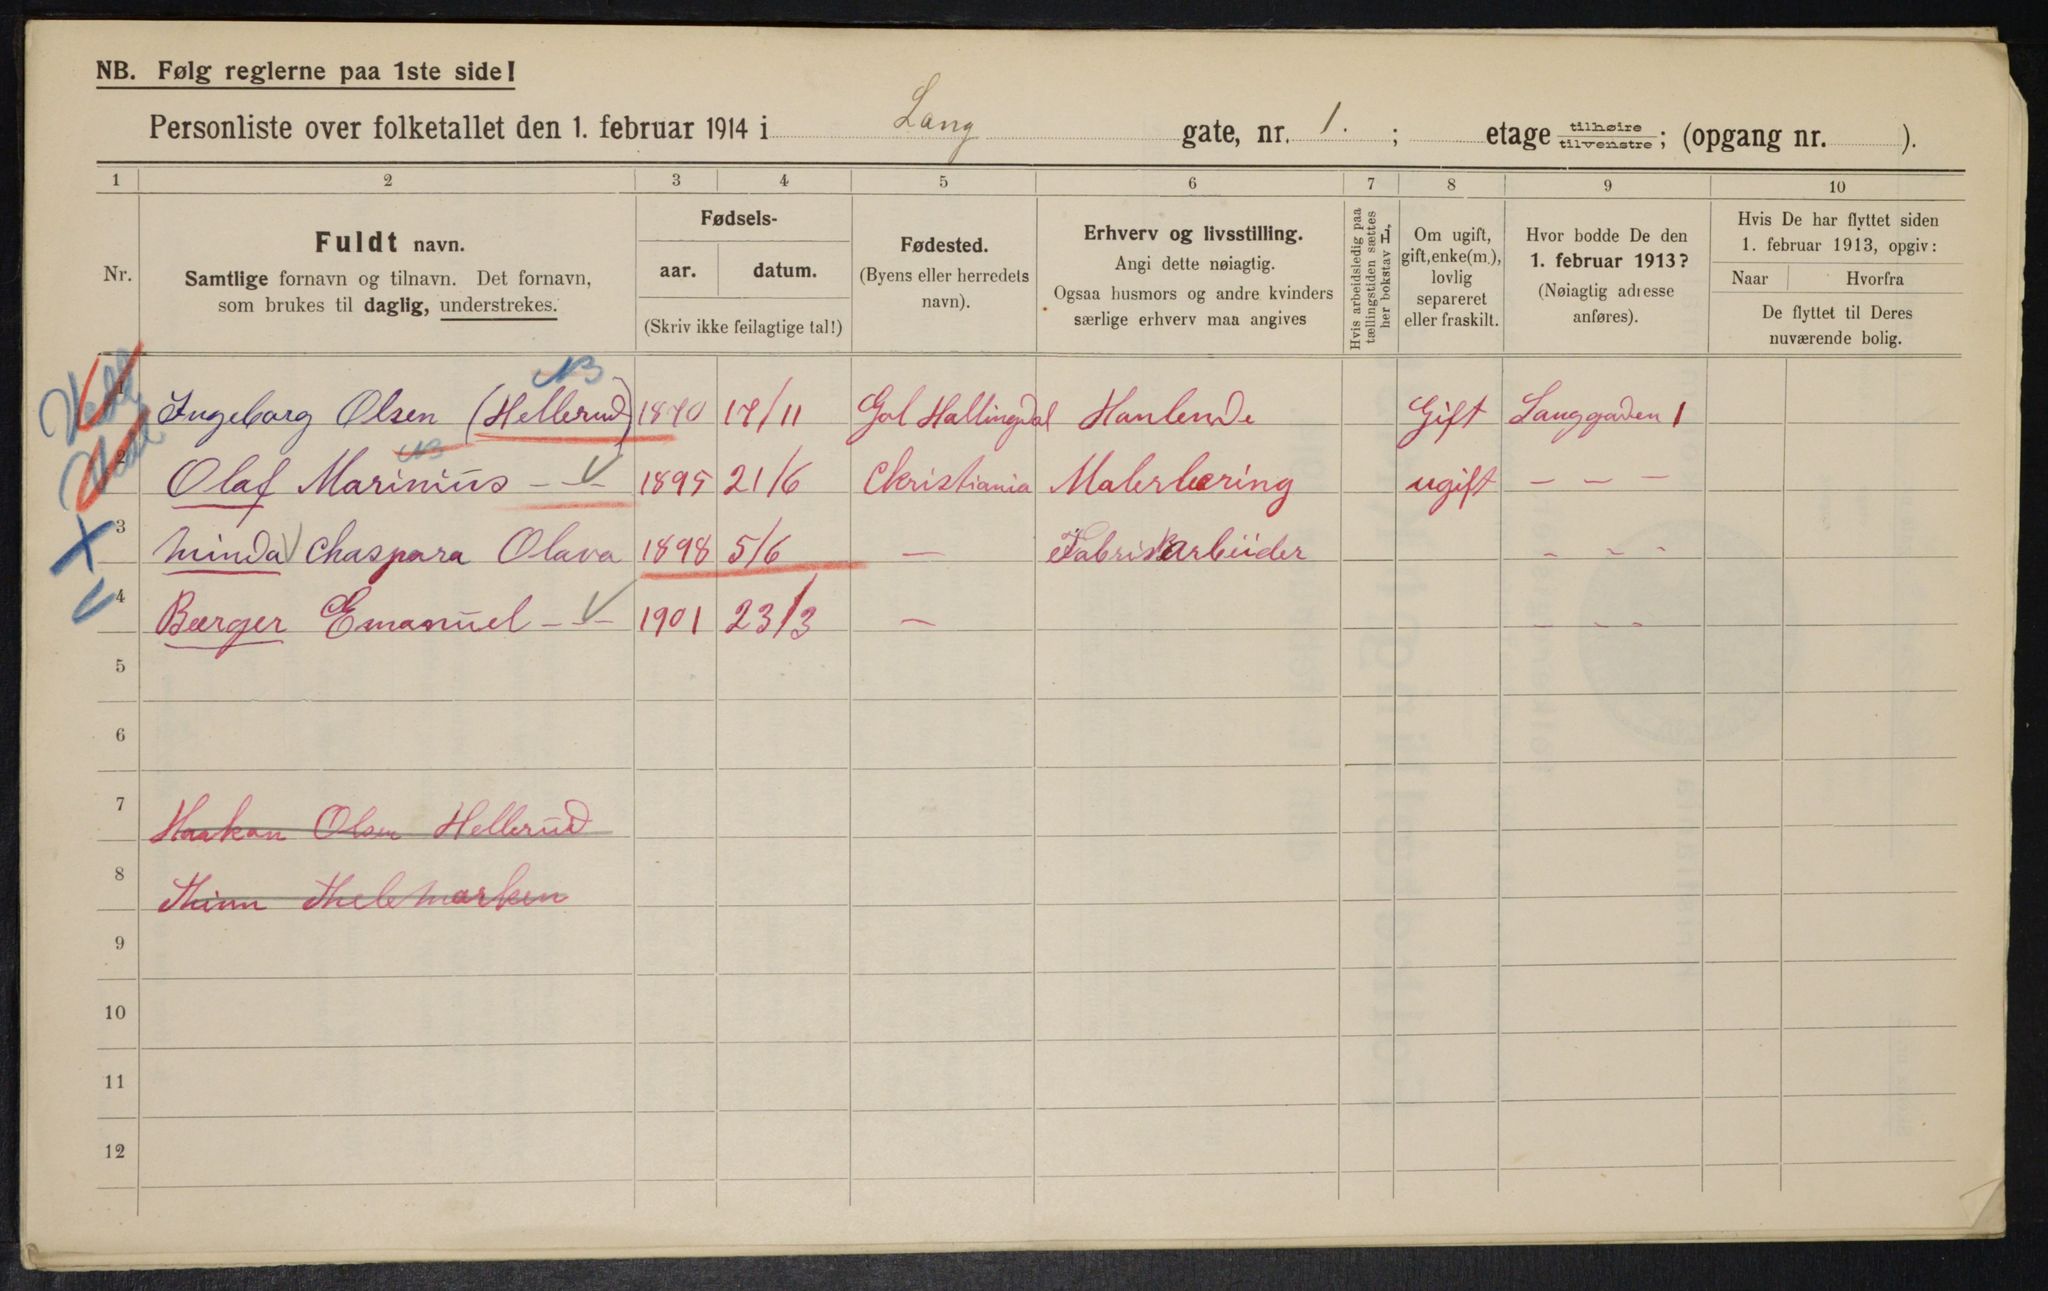 NB. Følg reglerne paa 1ste side!
Personliste over folketallet den 1. februar 1914 i Lang gate, nr. 1. ; etage tilhøire/tilvenstre; (opgang nr. ).
1 2 3 4 5 6 7 8 9 10
Nr.
Fuldt navn.
Samtlige fornavn og tilnavn. Det fornavn,
som brukes til daglig, understrekes.
Fødsels-
aar. datum.
(Skriv ikke feilagtige tal!)
Fødested.
(Byens eller herredets
navn).
Erhverv og livsstilling.
Angi dette nøiagtig.
Ogsaa husmors og andre kvinders
særlige erhverv maa angives
Hvis arbeidsledig paa
tællingstiden sættes
her bokstav L.
Om ugift,
gift, enke(m.),
lovlig
separeret
eller fraskilt.
Hvor bodde De den
1. februar 1913?
(Nøiagtig adresse
anføres).
Hvis De har flyttet siden
1. februar 1913, opgiv:
Naar Hvorfra
De flyttet til Deres
nuværende bolig.
NB
1 Ingeborg Olsen (Hellerud) 1870 17/11 Gol Hallingdal Hanlende Gift Langgaden 1
NB
2 Olaf Marinius - - - 1895 21/6 Christiania Malerlæring ugift - - -
3 Minda Chaspara Olava 1898 5/6 - Fabrikarbeider - - -
4 Bærger Emanuel - - - 1901 23/3 - - - -
5
6
7 Haakon Olsen Hellerud
8 Thinn Thelemarken
9
10
11
12